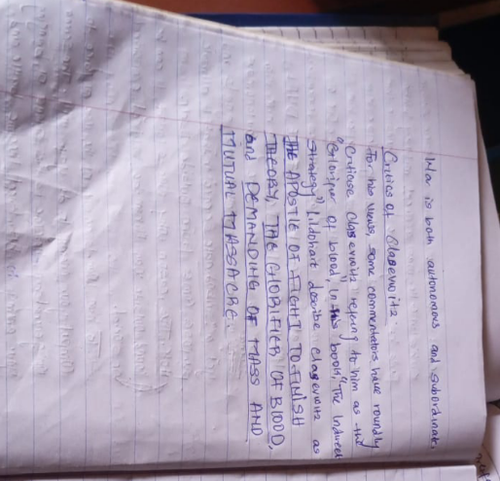 War is both autonomous and subordinate.
Critics of Clasewitz
For his views, some commentators have roundly
Criticise Clasewitz refering to him as the
"Glorifier of blood, in his book, "The Indirect
Strategy" Lidohart describe Clasewitz as
THE APOSTLE OF FIGHT TO FINISH
THEORY, THE GLORIFIER OF BLOOD,
and DEMANDING OF MASS AND
MUTUAL MASSACRE.